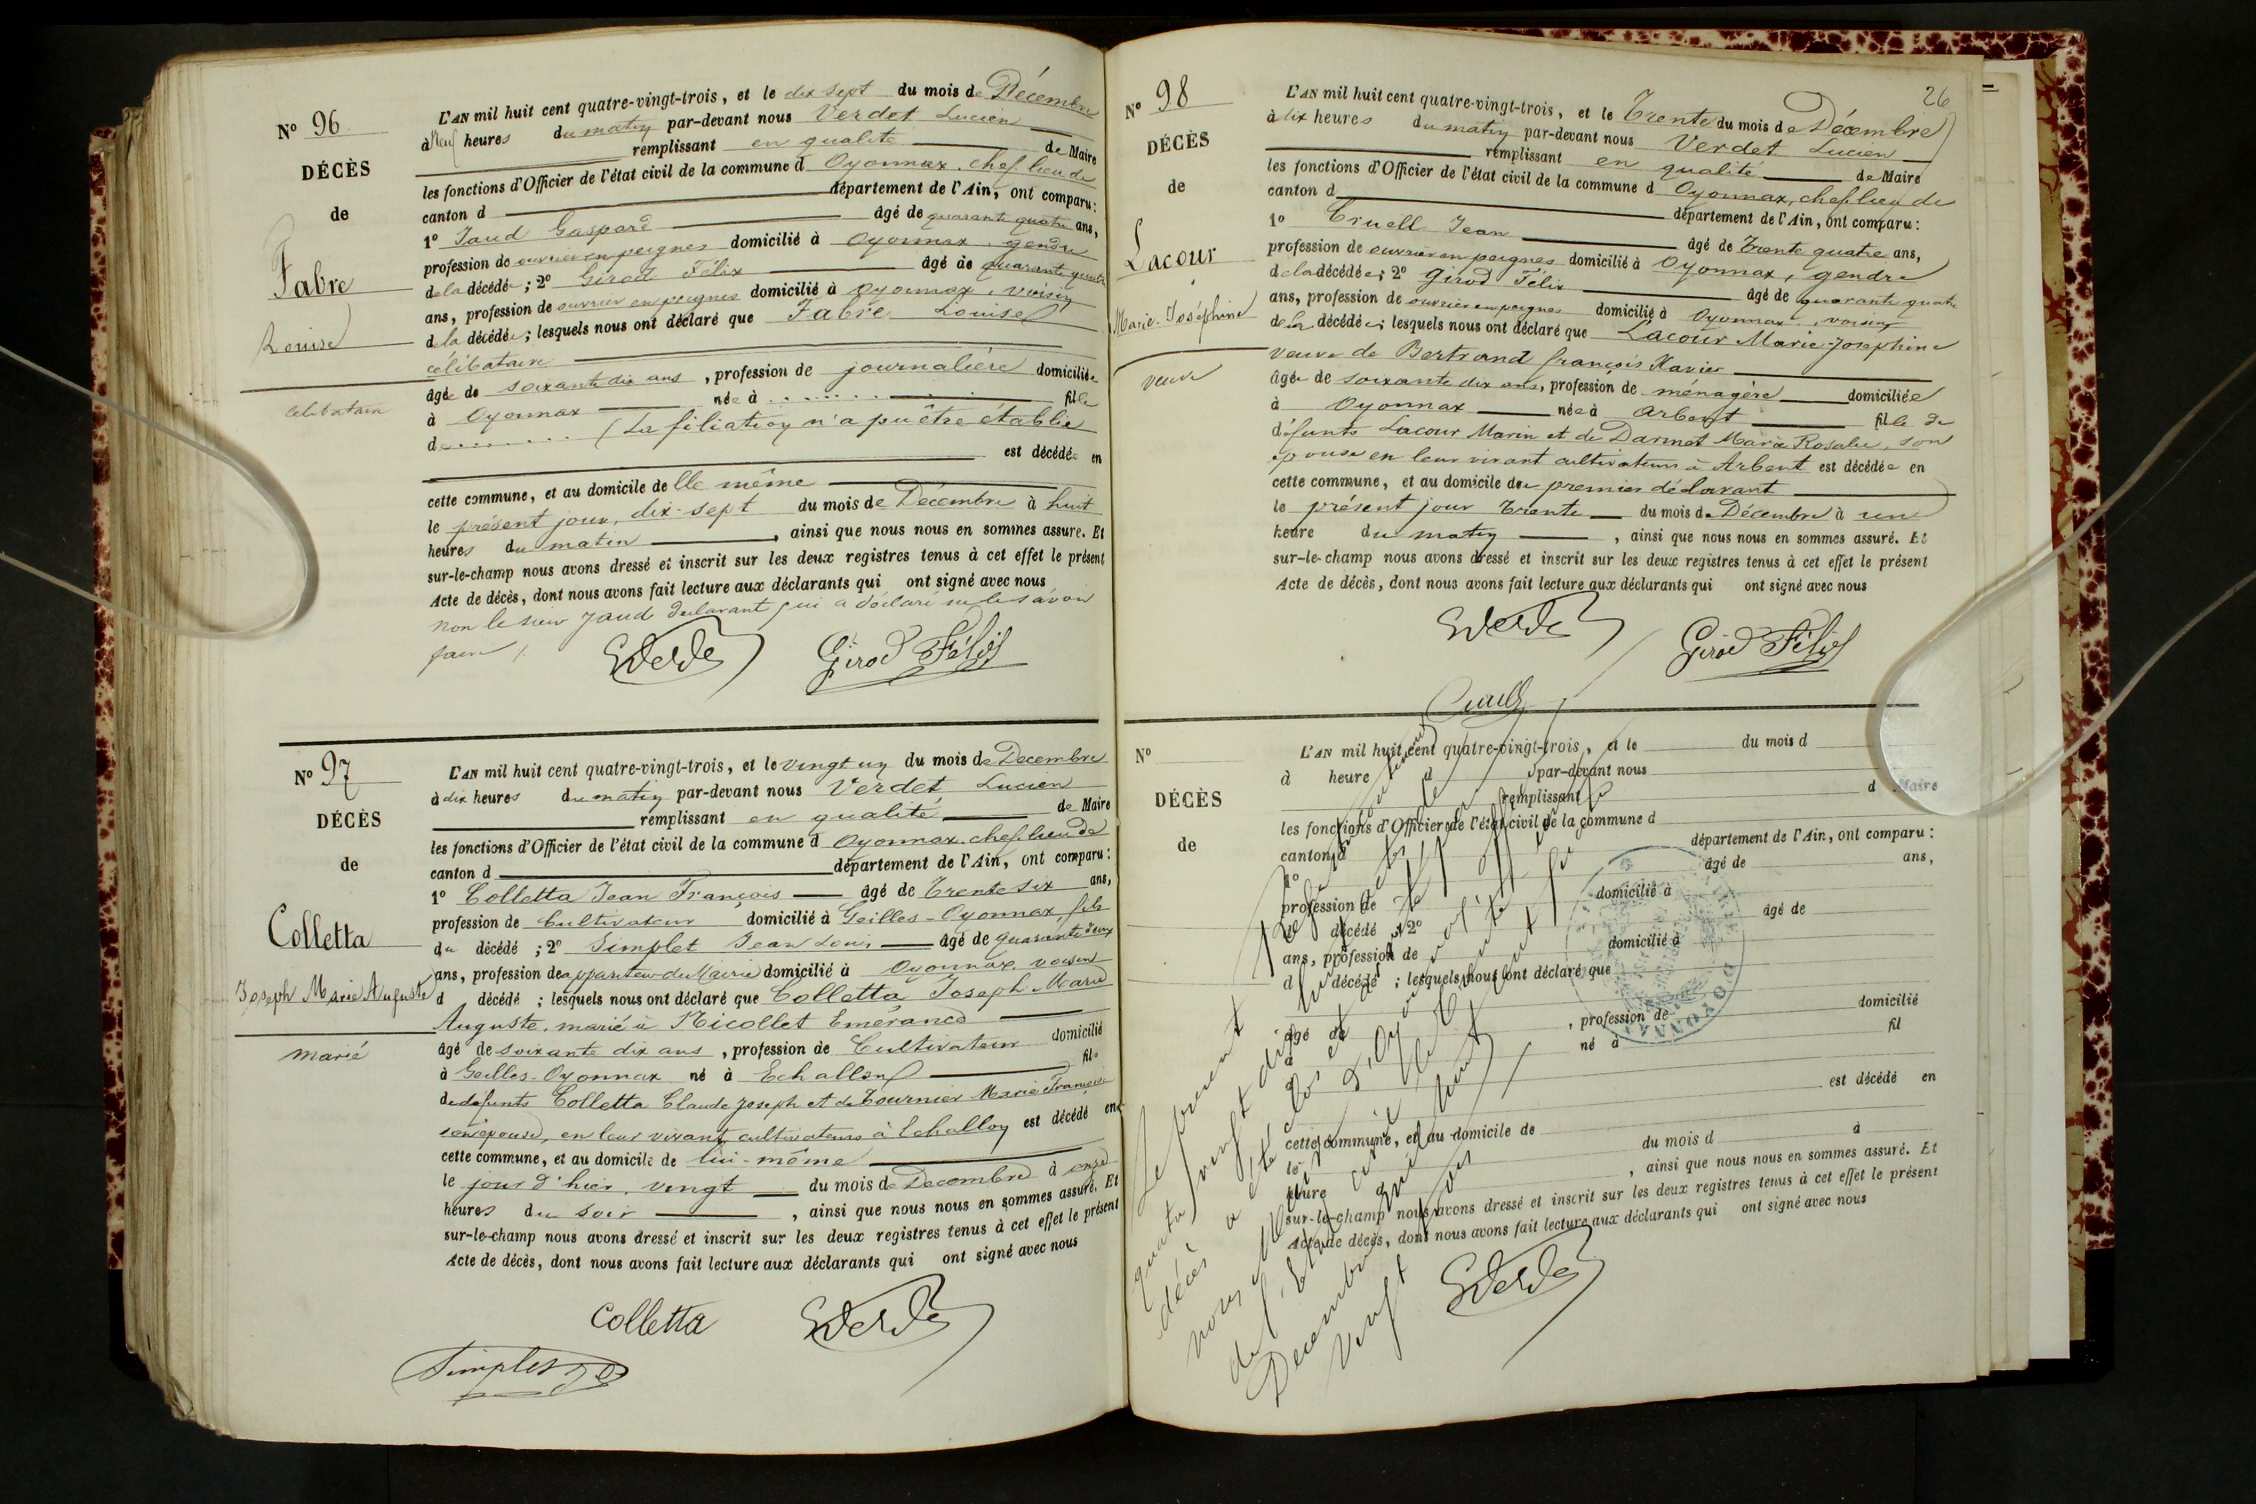 N° 96
DÉCÈS
de
Fabre
Louise
célibataire
L'AN mil huit cent quatre-vingt-trois, et le dix sept du mois de Décembre
à Neuf heures du matin par-devant nous Verdet Lucien
remplissant en qualité de Maire
les fonctions d'Officier de l'état civil de la commune d Oyonnax, chef lieu de
canton d département de l'Ain, ont comparu:
1° Jaud Gaspard âgé de quarante quatre ans,
profession de ouvrier en peignes domicilié à Oyonnax, gendre
de la décédée; 2° Girod Félix âgé de quarante quatre
ans, profession de ouvrier en peignes domicilié à Oyonnax, voisin
de la décédée; lesquels nous ont déclaré que Fabre Louise
célibataire
âgée de soixante dix ans, profession de journalière domiciliée
à Oyonnax née à ........ fille
d ........ (La filiation n'a pu être établie
est décédée en
cette commune, et au domicile de lle même
le présent jour, dix-sept du mois de Décembre à huit
heures du matin, ainsi que nous nous en sommes assuré. Et
sur-le-champ nous avons dressé et inscrit sur les deux registres tenus à cet effet le présent
Acte de décès, dont nous avons fait lecture aux déclarants qui ont signé avec nous
non le sieur Jaud déclarant qui a déclaré ne le savoir
faire /.
Girod Félix
N° 97
DÉCÈS
de
Colletta
Joseph Marie Auguste
marié
L'AN mil huit cent quatre-vingt-trois, et le vingt un du mois de Decembre
à dix heures du matin par-devant nous Verdet Lucien
remplissant en qualité de Maire
les fonctions d'Officier de l'état civil de la commune d Oyonnax, chef lieu de
canton d département de l'Ain, ont comparu:
1° Colletta Jean François âgé de Trente six ans,
profession de Cultivateur domicilié à Geilles-Oyonnax, fils
du décédé; 2° Simplet Jean Louis âgé de quarante deux
ans, profession de appariteur de Mairie domicilié à Oyonnax, voisin
d décédé; lesquels nous ont déclaré que Colletta Joseph Marie
Auguste, marié à Nicollet Emérance
âgé de soixante dix ans, profession de Cultivateur domicilié
à Geilles-Oyonnax né à Echallon fils
de defunts Colletta Claude Joseph et de Tournier Marie Françoise
son épouse, en leur vivant cultivateurs à Echallon est décédé en
cette commune, et au domicile de lui-même
le jour d'hier, vingt du mois de Decembre à onze
heures du soir, ainsi que nous nous en sommes assuré. Et
sur-le-champ nous avons dressé et inscrit sur les deux registres tenus à cet effet le présent
Acte de décès, dont nous avons fait lecture aux déclarants qui ont signé avec nous
Colletta
Simplet
26
N° 98
DÉCÈS
de
Lacour
Marie-Joséphine
veuve
L'AN mil huit cent quatre-vingt-trois, et le Trente du mois de Décembre
à dix heures du matin par-devant nous Verdet Lucien
remplissant en qualité de Maire
les fonctions d'Officier de l'état civil de la commune d Oyonnax, chef lieu de
canton d département de l'Ain, ont comparu:
1° Cruell Jean âgé de Trente quatre ans,
profession de ouvrier en peignes domicilié à Oyonnax, gendre
de la décédée; 2° Girod Félix âgé de quarante quatre
ans, profession de ouvrier en peignes domicilié à Oyonnax, voisin
de la décédée; lesquels nous ont déclaré que Lacour Marie-Josephine
veuve de Bertrand françois Xavier
âgée de soixante dix ans, profession de ménagère domiciliée
à Oyonnax née à Arbent fille de
défunts Lacour Marin et de Darmet Marie Rosalie, son
epouse en leur vivant cultivateurs à Arbent est décédée en
cette commune, et au domicile du premier déclarant
le présent jour Trente du mois de Décembre à une
heure du matin, ainsi que nous nous en sommes assuré. Et
sur-le-champ nous avons dressé et inscrit sur les deux registres tenus à cet effet le présent
Acte de décès, dont nous avons fait lecture aux déclarants qui ont signé avec nous
Girod Félix
Cruell
N°
DÉCÈS
de
L'AN mil huit cent quatre-vingt-trois, et le du mois d
à heure d par-devant nous
remplissant d Maire
les fonctions d'Officier de l'état civil de la commune d
canton d département de l'Ain, ont comparu:
1° âgé de ans,
profession de domicilié à
d décédé; 2° âgé de
ans, profession de domicilié à
d décédé; lesquels nous ont déclaré que
âgé de, profession de domicilié
à né à fil
d
est décédé en
cette commune, et au domicile de
le du mois d à
heure, ainsi que nous nous en sommes assuré. Et
sur-le-champ nous avons dressé et inscrit sur les deux registres tenus à cet effet le présent
Acte de décès, dont nous avons fait lecture aux déclarants qui ont signé avec nous
Le présent
décès a été clos et
Decembre